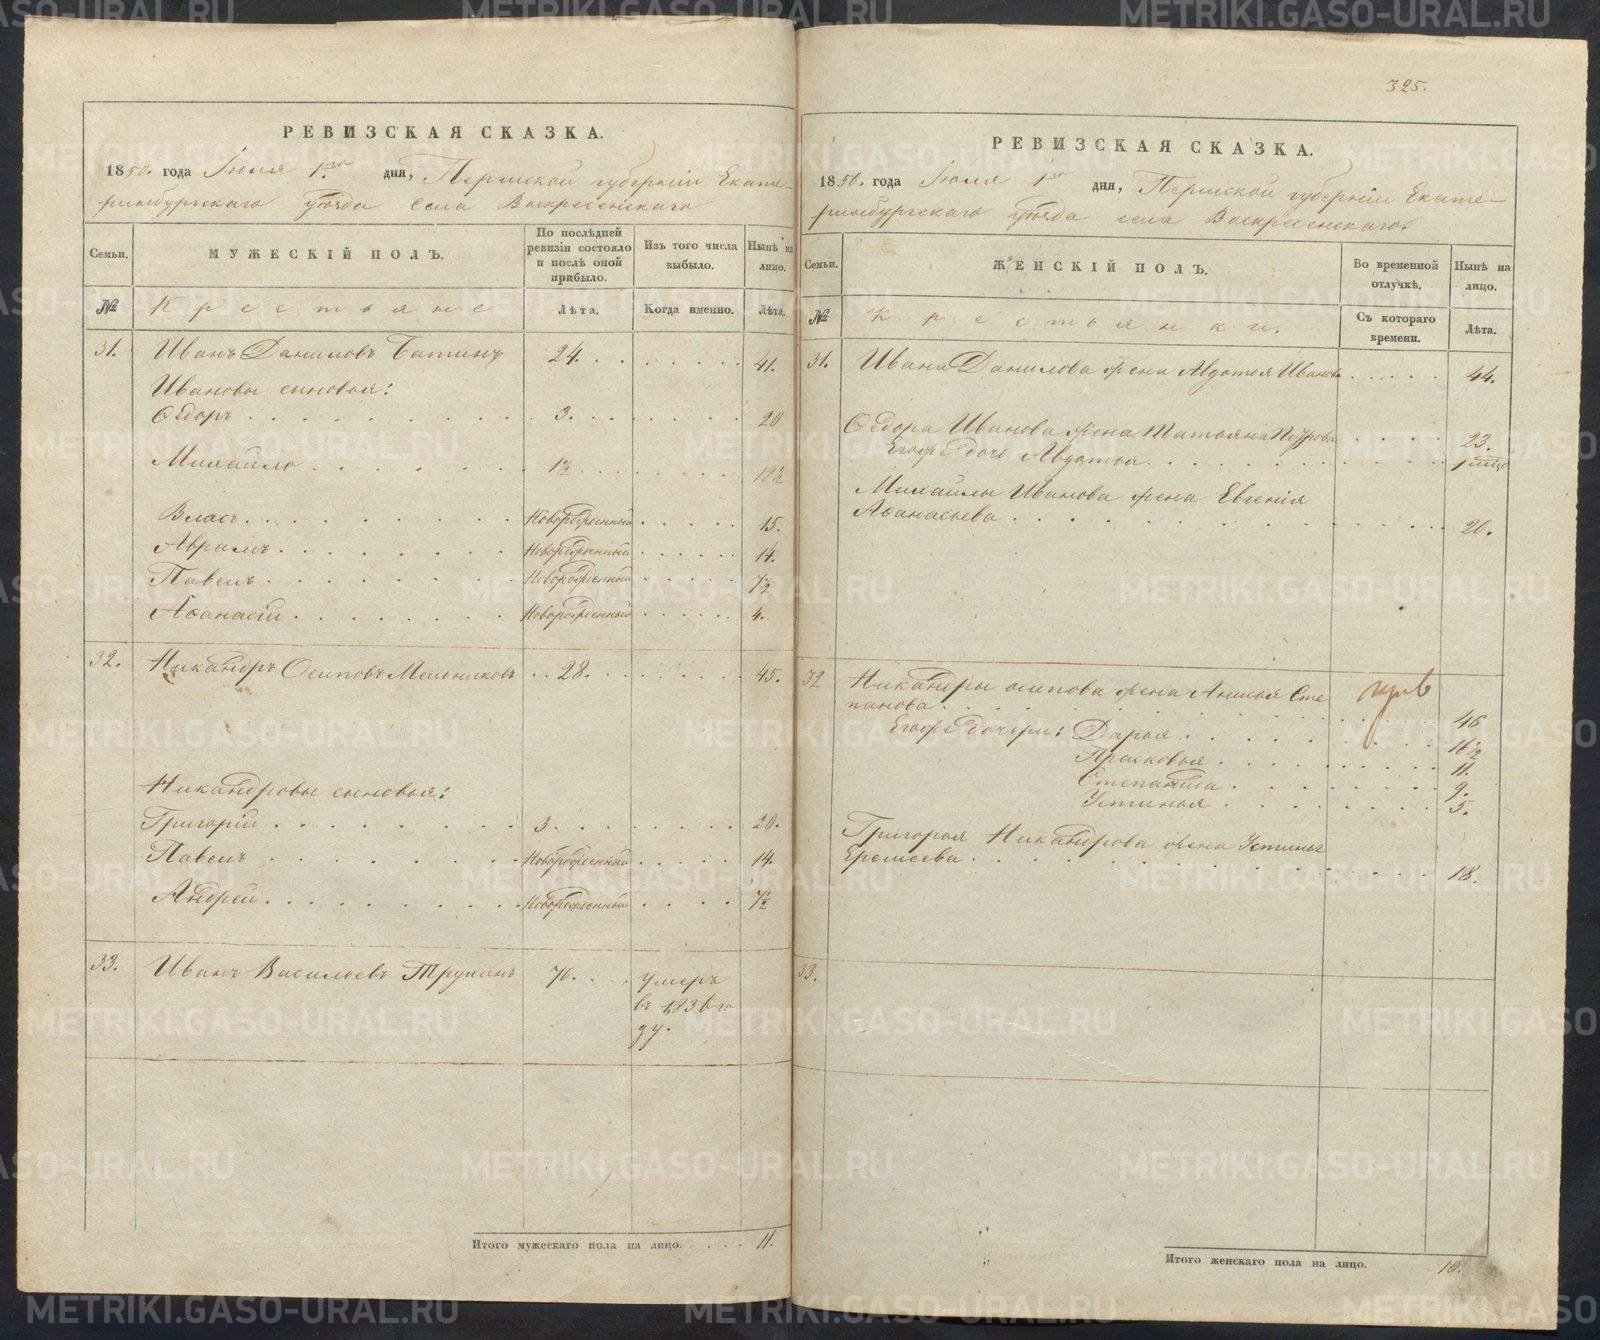 325.
РЕВИЗСКАЯ СКАЗКА.
1850. года Іюля 1го дня, Пермской губерніи Екате-
ринбургскаго уѣзда села Воскресенскаго
Семьи.
МУЖЕСКІЙ ПОЛЪ.
По послѣдней
ревизіи состояло
и послѣ оной
прибыло.
Изъ того числа
выбыло.
Нынѣ на
лицо.
№
Крестьяне
Лѣта.
Когда именно.
Лѣта.
31. Иванъ Даниловъ Батинъ 24. 41.
Ивановы сыновья:
Ѳедоръ 3. 20
Михайло 1½ 18½
Власъ. Новорожденный 15.
Аврамъ. Новорожденный 14.
Павелъ. Новорожденный 7½
Аѳанасій Новорожденный 4.
32. Никандръ Осиповъ Мельниковъ 28. 45.
Никандровы сыновья:
Григорій 3. 20.
Павелъ Новорожденный 14.
Андрей Новорожденный 7½
33. Иванъ Васильевъ 70. умеръ
въ 1836 го
ду.
Итого мужескаго пола на лицо. 11.
РЕВИЗСКАЯ СКАЗКА.
1850. года Іюля 1го дня, Пермской губерніи Екате-
ринбургскаго уѣзда села Воскресенскаго.
Семьи.
ЖЕНСКІЙ ПОЛЪ.
Во временной
отлучкѣ.
Нынѣ на
лицо.
№
Крестьянки.
Съ котораго
времени.
Лѣта.
31. Ивана Данилова жена Авдотья Иванова 44.
Ѳедора Иванова жена Татьяна Петрова 23.
Егожъ дочь Авдотья 1
Михайлы Иванова жена Евгенія
Аѳанасьева 20.
32 Никандры осипова жена Анисья Сте
панова 46
Егожъ дочери: Дарья 16½
Прасковья 11.
Степанида 9.
Устинья 5.
Григорья Никандрова жена Устинья
Еремеева 18.
33.
Итого женскаго пола на лицо. 10.
METRIKI.GASO-URAL.RU